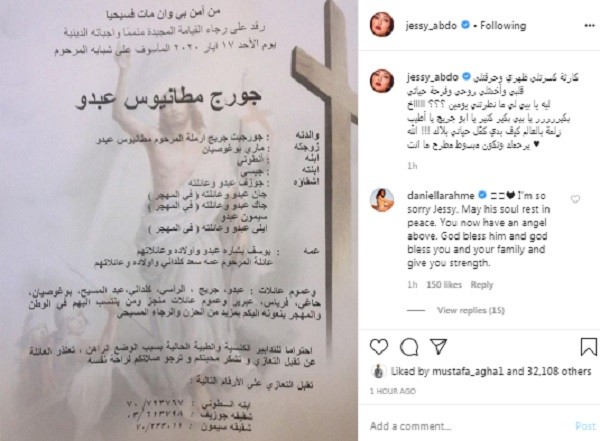 من آمن بي وان مات فسيحيا
رقد على رجاء القيامة المجيدة متمماً واجباته الدينية
يوم الأحد ١٧ ايار ٢٠٢٠ المأسوف على شبابه المرحوم
جورج مطانيوس عبدو
والدته : جورجيت جريج ارملة المرحوم مطانيوس عبدو
زوجته : ماري بوغوصيان
ابنه : انطوني
ابنته : جيسي
اشقاؤه : جوزف عبدو وعائلته
جان عبدو وعائلته ( في المهجر )
جاك عبدو وعائلته ( في المهجر )
سيمون عبدو
ايلي عبدو وعائلته ( في المهجر )
عمه : يوسف بشاره عبدو واولاده وعائلاتهم
عائلة المرحوم عمه سعد كلداني واولاده وعائلاتهم
وعموم عائلات : عبدو، جريج ، الراسي، كلداني، عبد المسيح، بوغوصيان،
وعموم عائلات منجز ومن ينتسب اليهم في الوطن
والمهجر ينعونه اليكم بمزيد من الحزن والرجاء المسيحي
احتراما للتدابير الكنسية والطبية الحالية بسبب الوضع الراهن ، تعتذر العائلة
عن تقبل التعازي و تشكر محبتكم و ترجو صلاتكم لراحة نفسه
تقبل التعازي على الأرقام التالية :
ابنه انطوني
شقيقه جوزيف
شقيقه سيمون
jessy_abdo • Following
jessy_abdo كارثة كسرتلي ظهري وحرقتلي
قلبي وأخدتلي روحي وفرحة حياتي
ليه يا بيي لي ما نطرتني يومين ؟؟؟ اااااخ
بكيرررر يا بيي بكير كتير يا ابو جريج يا أطيب
زلمة بالعالم كيف بدي كفّل حياتي بلاك !!! الله
يرحمك وتكون مبسوط مطرح ما انت ♥
1h
daniellarahme I'm so
sorry Jessy. May his soul rest in
peace. You now have an angel
above. God bless him and god
bless you and your family and
give you strength.
1h 150 likes Reply
View replies (15)
Liked by mustafa_agha1 and 32,108 others
1 HOUR AGO
Add a comment... Post